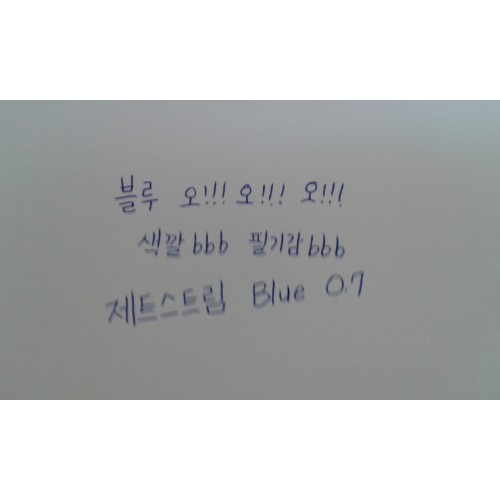 블루 오!!! 오!!! 오!!!
색깔bbb 필기감bbb
제트스트림 Blue 0.7